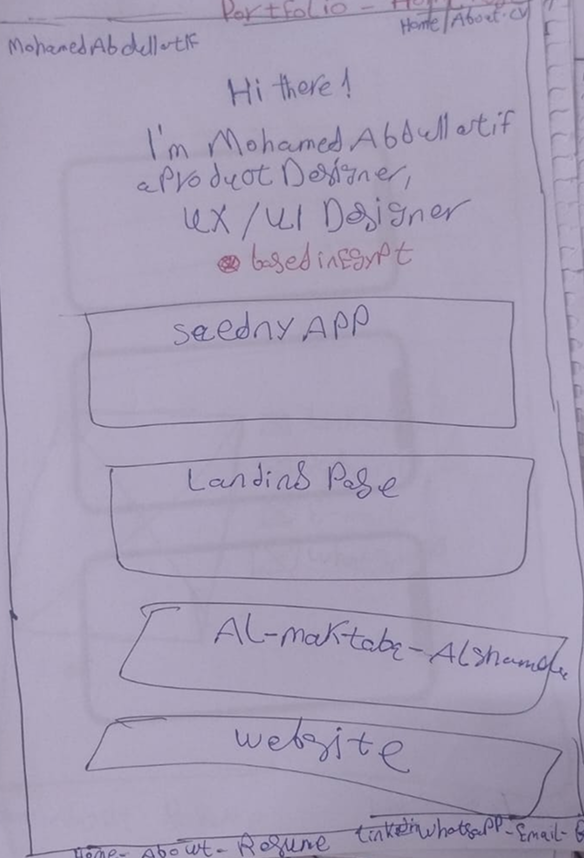 Portfolio - Ho
Home/About-CV
MohamedAbdullatif
Hi there!
I'm Mohamed Abdullatif
a Product Designer,
UX/UI Designer
based in Egypt
saedny APP
Landing Page
AL-maktaba-Alshamela
website
Home- About- Resume
Linkedin whatsapp-Email-B